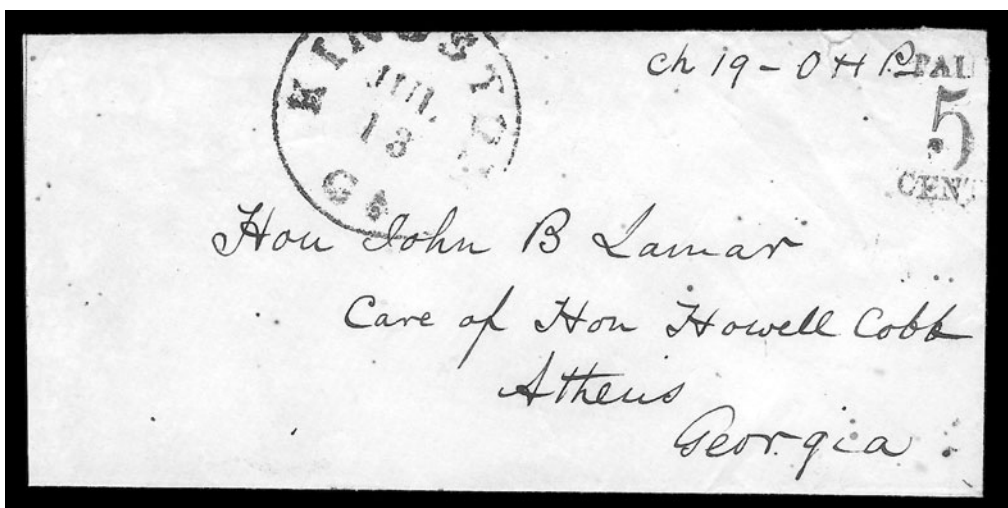 KINGSTON
JUL
13
GA
ch 19 - O H P
PAI
5
CENT
Hon John B Lamar
Care of Hon Howell Cobb
Athens
Georgia